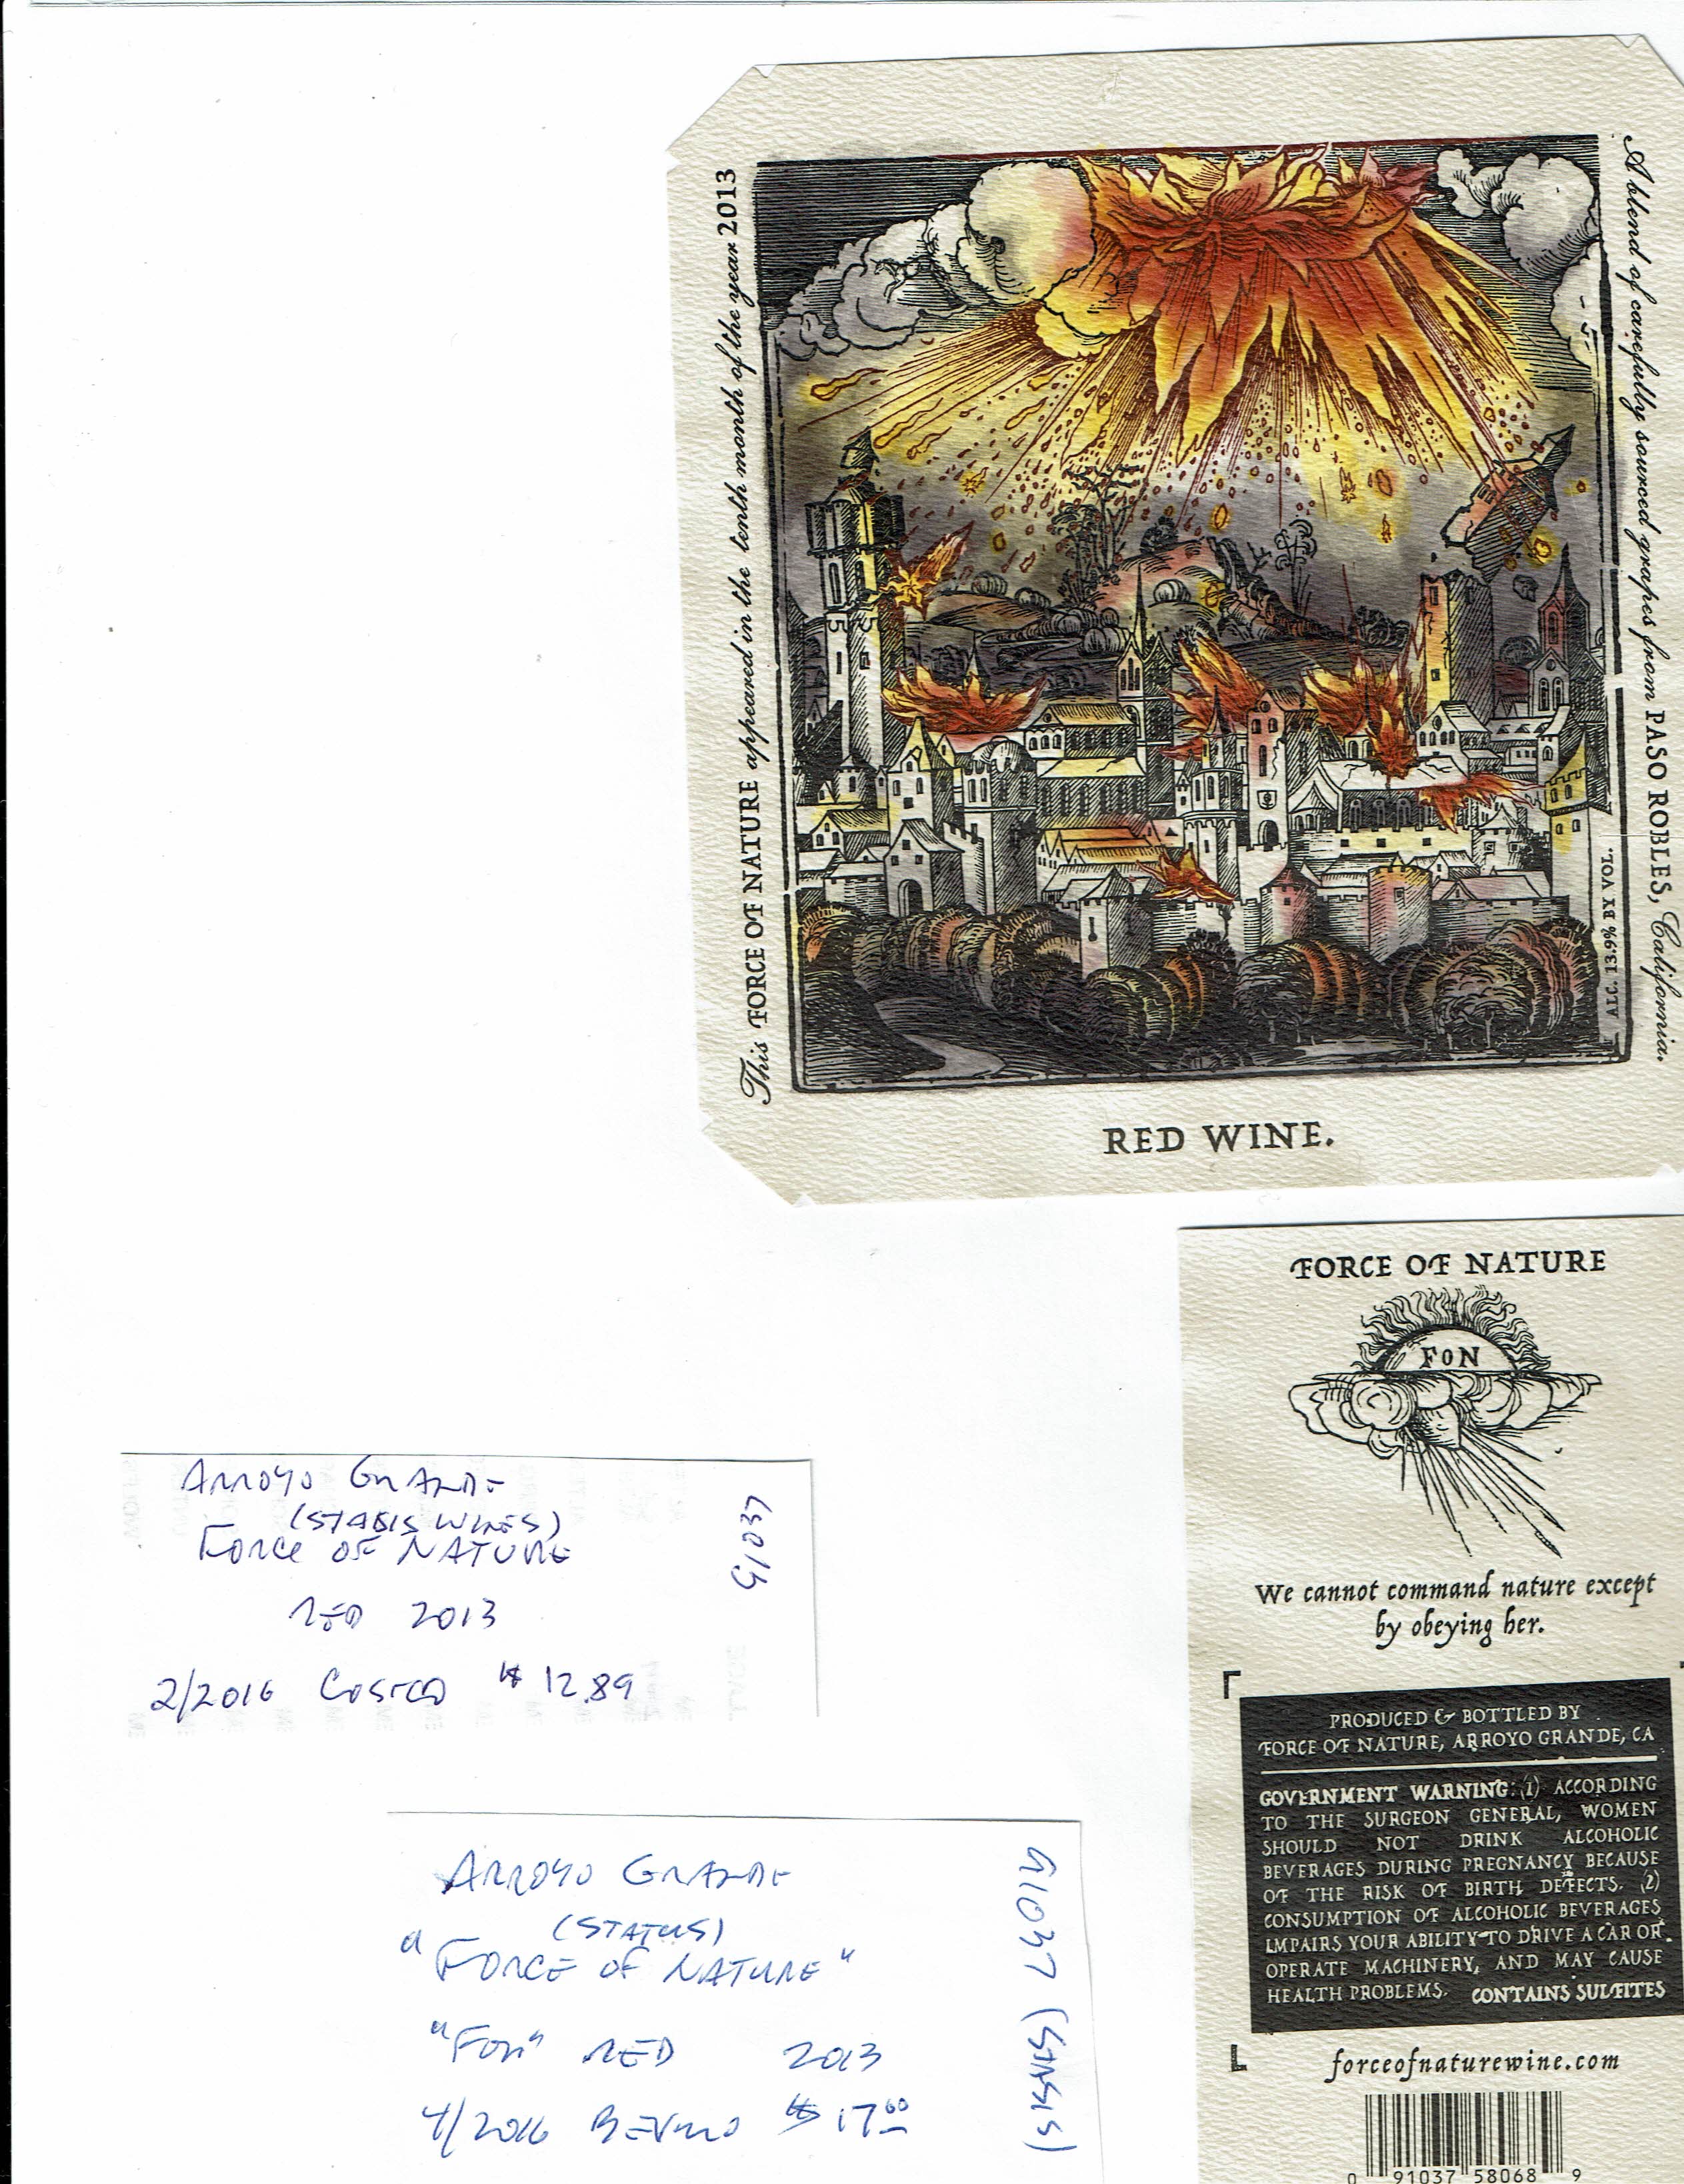 This FORCE OF NATURE appeared in the tenth month of the year 2013
A blend of carefully sourced grapes from PASO ROBLES, California.
ALC. 13.9% BY VOL.
RED WINE.
FORCE OF NATURE
FON
We cannot command nature except
by obeying her.
PRODUCED & BOTTLED BY
FORCE OF NATURE, ARROYO GRANDE, CA
GOVERNMENT WARNING: (1) ACCORDING
TO THE SURGEON GENERAL, WOMEN
SHOULD NOT DRINK ALCOHOLIC
BEVERAGES DURING PREGNANCY BECAUSE
OF THE RISK OF BIRTH DEFECTS. (2)
CONSUMPTION OF ALCOHOLIC BEVERAGES
IMPAIRS YOUR ABILITY TO DRIVE A CAR OR
OPERATE MACHINERY, AND MAY CAUSE
HEALTH PROBLEMS. CONTAINS SULFITES
forceofnaturewine.com
0 91037 58068 9
ARROYO GRANDE
(STASIS WINES)
FORCE OF NATURE
RED 2013
2/2016 COSTCO $12.89
91037
ARROYO GRANDE
(STATUS)
"FORCE OF NATURE"
"FON" RED 2013
4/2016 BEVMO $17.00
91037 (STASIS)